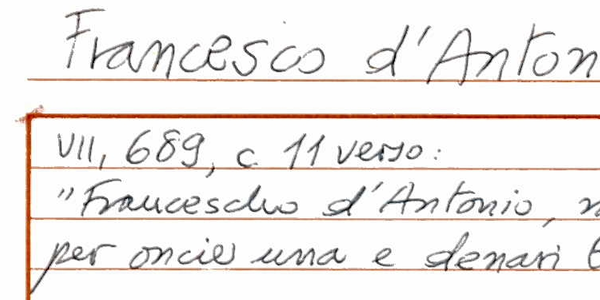 Francesco d'Anton
VII, 689, c. 11 verso:
"Francescho d'Antonio,
per oncie una e denari